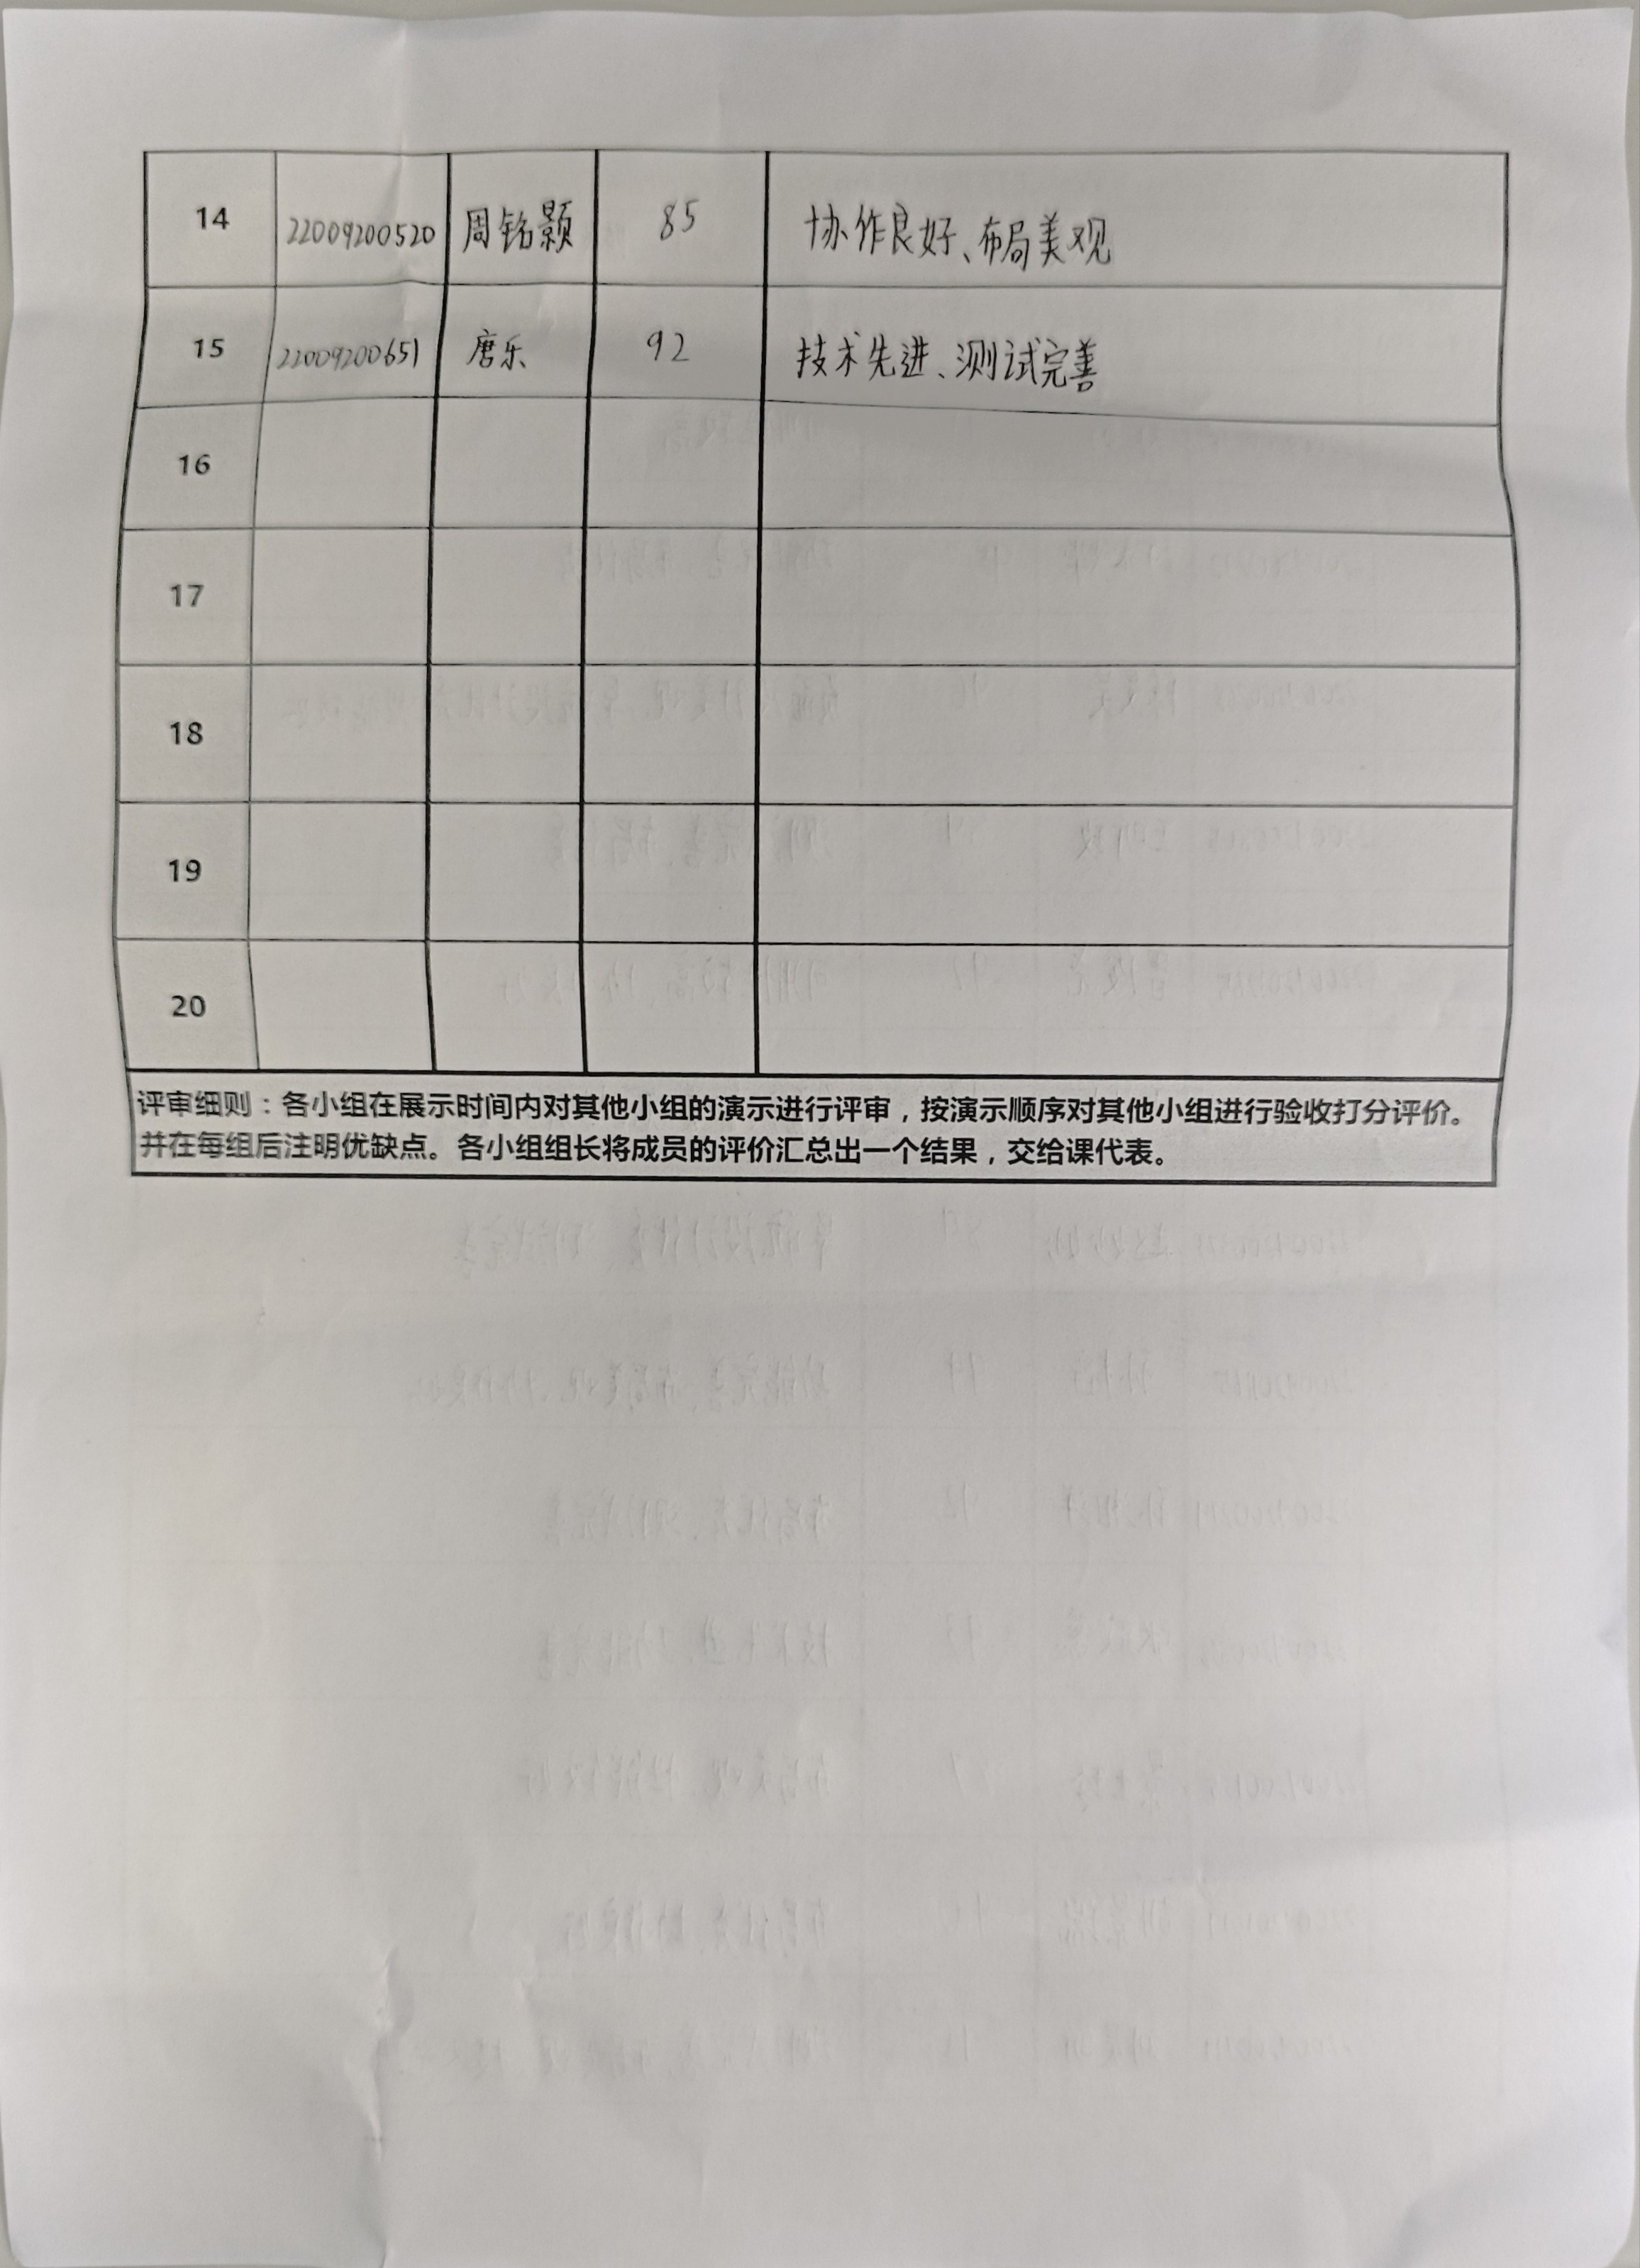 14 22009200520 周铭颢 85 协作良好、布局美观
15 22009200651 唐乐 92 技术先进、测试完善
16
17
18
19
20
评审细则：各小组在展示时间内对其他小组的演示进行评审，按演示顺序对其他小组进行验收打分评价。
并在每组后注明优缺点。各小组组长将成员的评价汇总出一个结果，交给课代表。